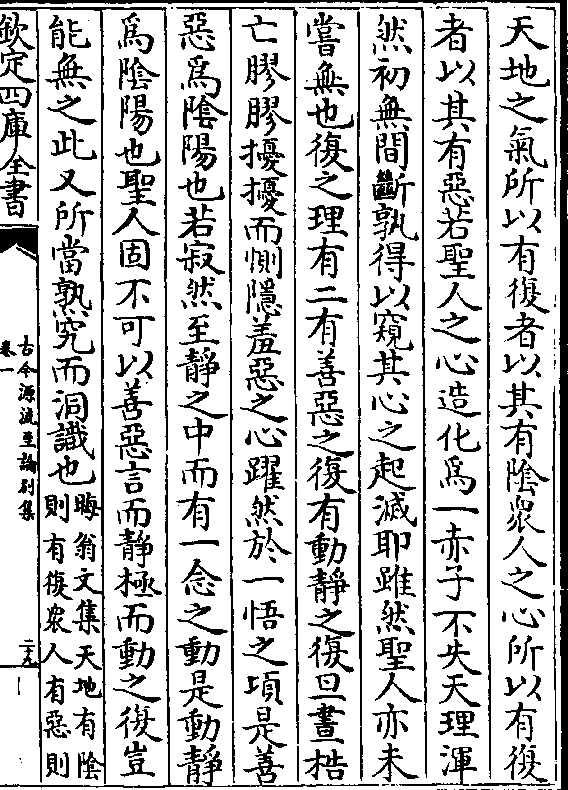 天地之氣所以有復者以其有陰衆人之心所以有復
者以其有惡若聖人之心造化爲一赤子不失天理渾
然初無間斷孰得以窺其心之起滅耶雖然聖人亦未
嘗無也復之理有二有善惡之復有動静之復旦晝梏
亡膠膠擾擾而惻隱羞惡之心躍然於一悟之頃是善
惡爲隂陽也若寂然至靜之中而有一念之動是動靜
爲陰陽也聖人固不可以善惡言而靜極而動之復豈
能無之此又所當熟究而洞識也晦翁文集天地有陰
則有復衆人有惡則
欽定四庫全書
古今源流至論别集
卷一
二十九